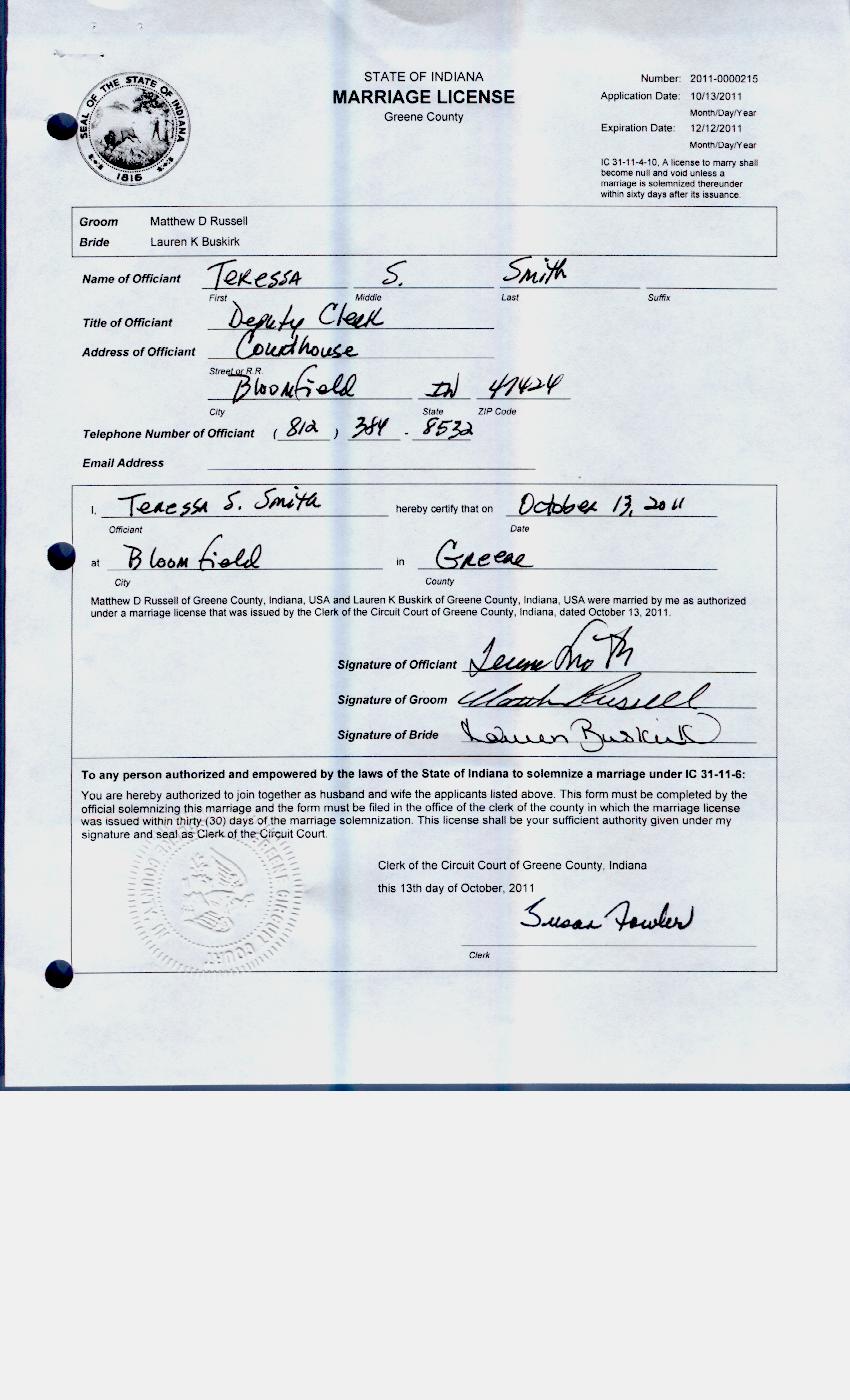 SEAL OF THE STATE OF INDIANA
1816
STATE OF INDIANA
MARRIAGE LICENSE
Greene County
Number: 2011-0000215
Application Date: 10/13/2011
Month/Day/Year
Expiration Date: 12/12/2011
Month/Day/Year
IC 31-11-4-10, A license to marry shall
become null and void unless a
marriage is solemnized thereunder
within sixty days after its issuance.
Groom Matthew D Russell
Bride Lauren K Buskirk
Name of Officiant Teressa S. Smith
First Middle Last Suffix
Title of Officiant Deputy Clerk
Address of Officiant Courthouse
Street or R.R.
Bloomfield IN 47424
City State ZIP Code
Telephone Number of Officiant (812) 384-8532
Email Address
I, Teressa S. Smith hereby certify that on October 13, 2011
Officiant Date
at Bloomfield in Greene
City County
Matthew D Russell of Greene County, Indiana, USA and Lauren K Buskirk of Greene County, Indiana, USA were married by me as authorized
under a marriage license that was issued by the Clerk of the Circuit Court of Greene County, Indiana, dated October 13, 2011.
Signature of Officiant
Signature of Groom Russell
Signature of Bride Lauren Buskirk
To any person authorized and empowered by the laws of the State of Indiana to solemnize a marriage under IC 31-11-6:
You are hereby authorized to join together as husband and wife the applicants listed above. This form must be completed by the
official solemnizing this marriage and the form must be filed in the office of the clerk of the county in which the marriage license
was issued within thirty (30) days of the marriage solemnization. This license shall be your sufficient authority given under my
signature and seal as Clerk of the Circuit Court.
Clerk of the Circuit Court of Greene County, Indiana
this 13th day of October, 2011
Susan Fowler
Clerk